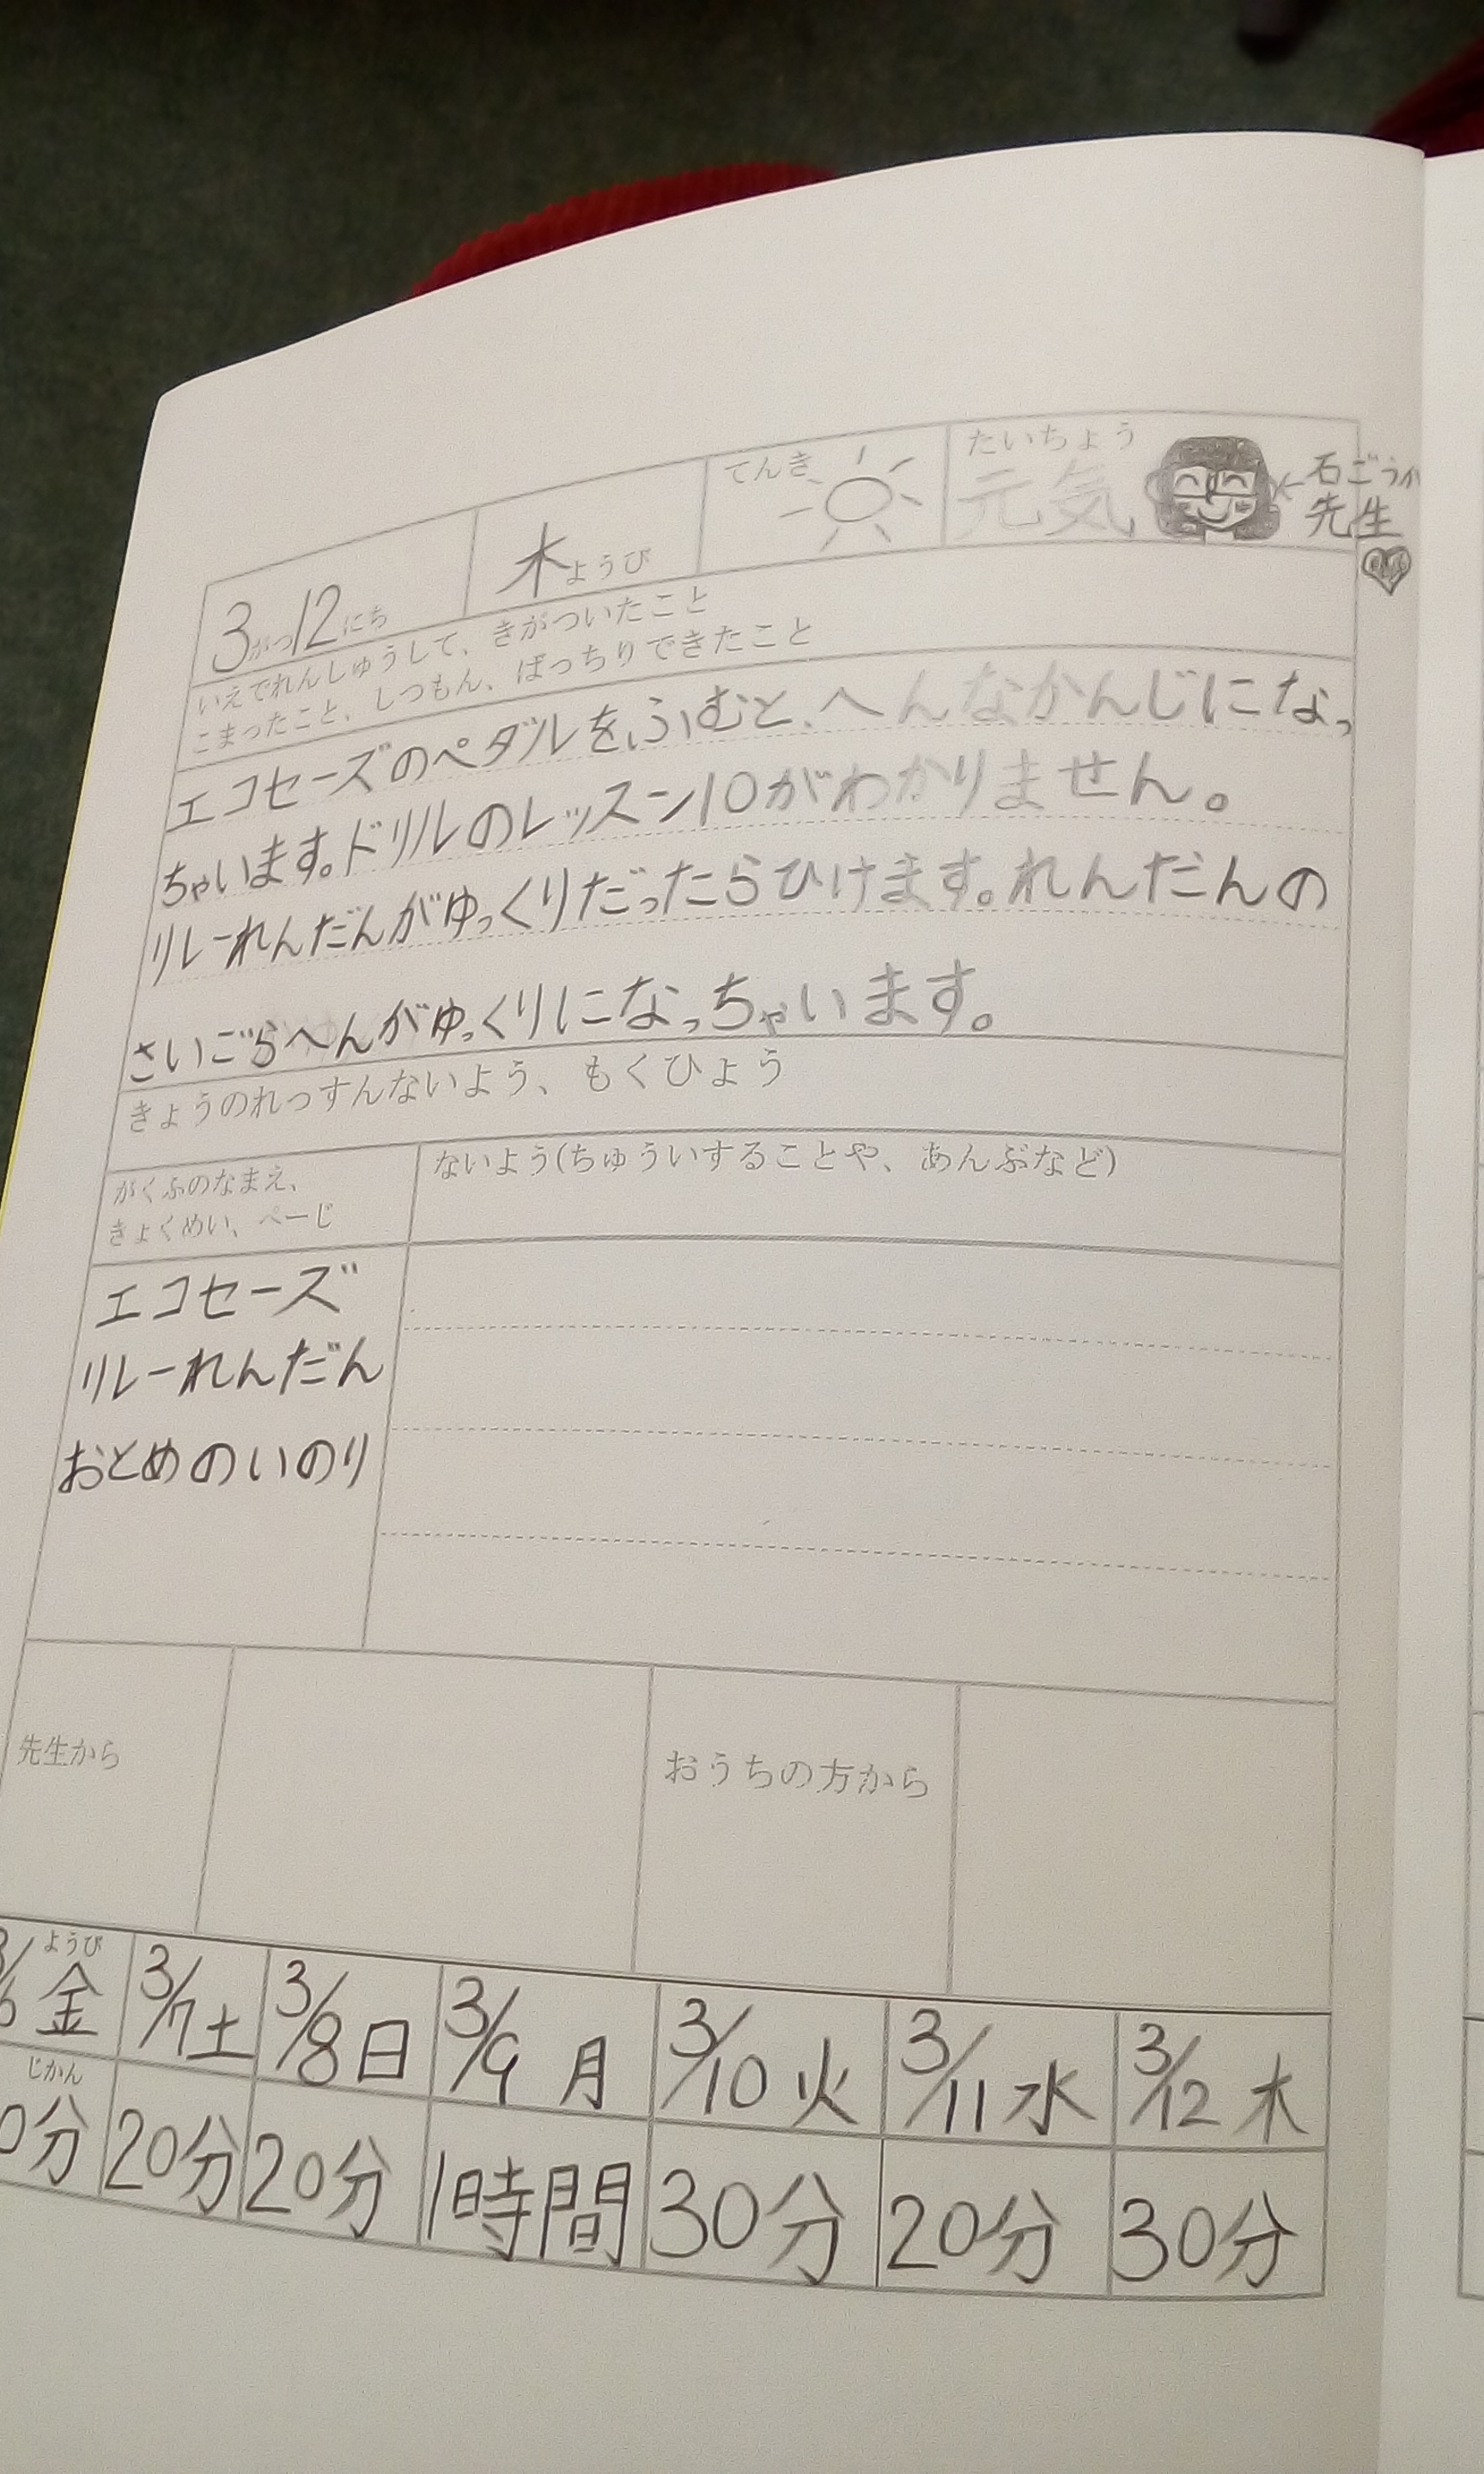 3がつ12にち 木ようび てんき たいちょう 元気 ←石ごうか
先生
いえでれんしゅうして、きがついたこと
こまったこと、しつもん、ばっちりできたこと
エコセーズのペダルをふむと、へんなかんじになっ
ちゃいます。ドリルのレッスン10がわかりません。
リレーれんだんがゆっくりだったらひけます。れんだんの
さいごらへんがゆっくりになっちゃいます。
きょうのれっすんないよう、もくひょう
がくふのなまえ、
きょくめい、ページ
ないよう(ちゅういすることや、あんぷなど)
エコセーズ
リレーれんだん
おとめのいのり
先生から おうちの方から
ようび
金 3/7土 3/8日 3/9月 3/10火 3/11水 3/12木
じかん
0分 20分 20分 1時間 30分 20分 30分